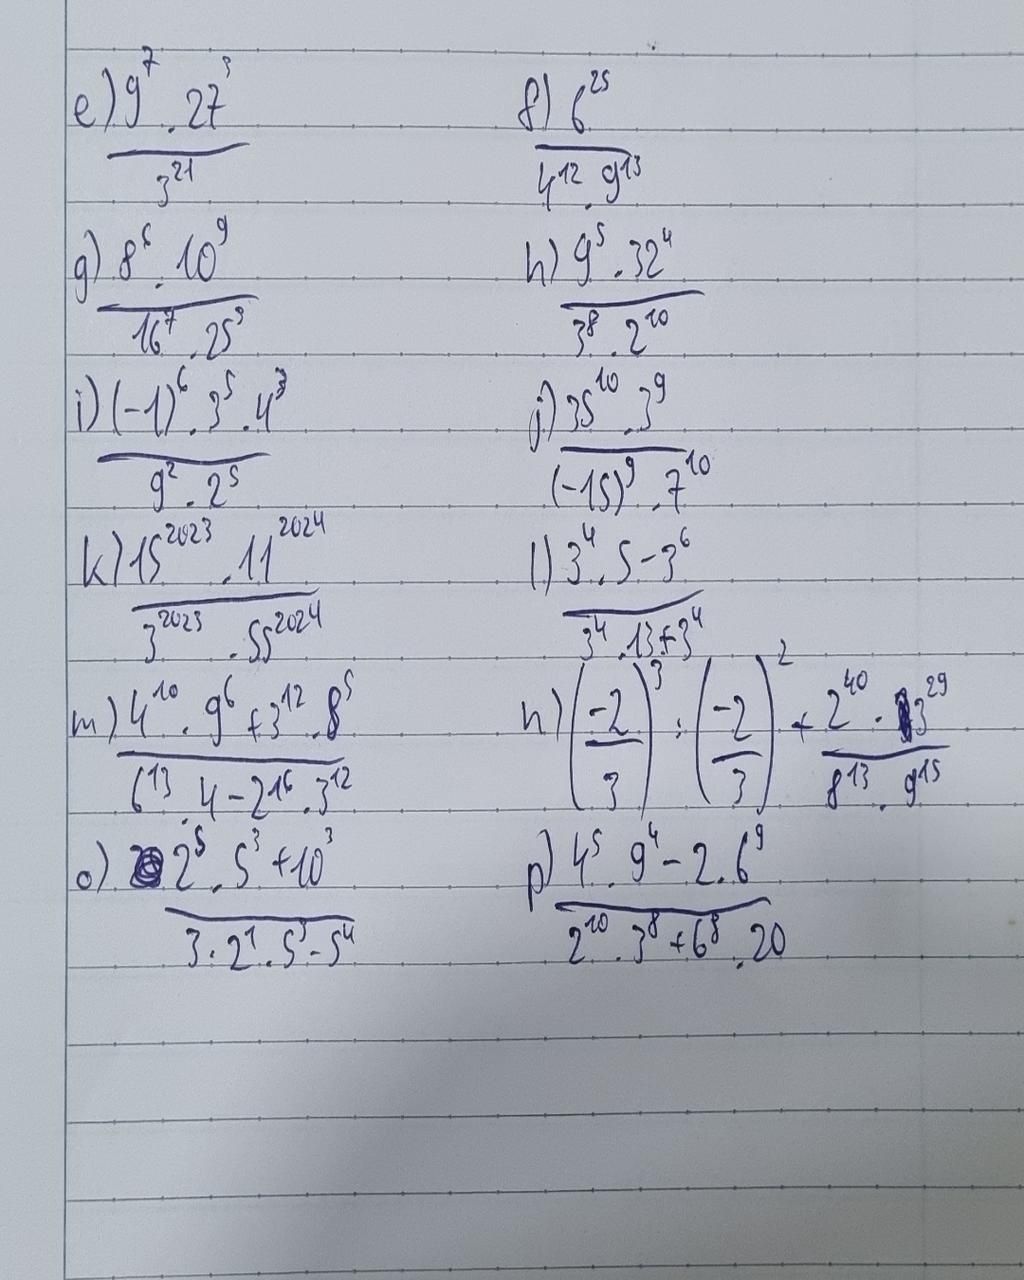 e) 9^7 . 27^3 / 3^21
f) 6^25 / 4^12 . 9^13
g) 8^6 . 10^9 / 16^7 . 25^3
h) 9^5 . 32^4 / 3^8 . 2^10
i) (-1)^6 . 3^5 . 4^3 / 9^2 . 2^5
j) 35^10 . 3^9 / (-15)^9 . 7^10
k) 15^2023 . 11^2024 / 3^2023 . 55^2024
l) 3^4 . 5 - 3^6 / 3^4 . 13 + 3^4
m) 4^10 . 9^6 + 3^12 . 8^5 / 6^13 . 4 - 2^16 . 3^12
n) (-2/3)^3 : (-2/3)^2 + 2^40 . 3^29 / 8^13 . 9^15
o) 2^5 . 5^3 + 10^3 / 3 . 2^1 . 5^3 - 5^4
p) 4^5 . 9^4 - 2 . 6^9 / 2^10 . 3^8 + 6^8 . 20